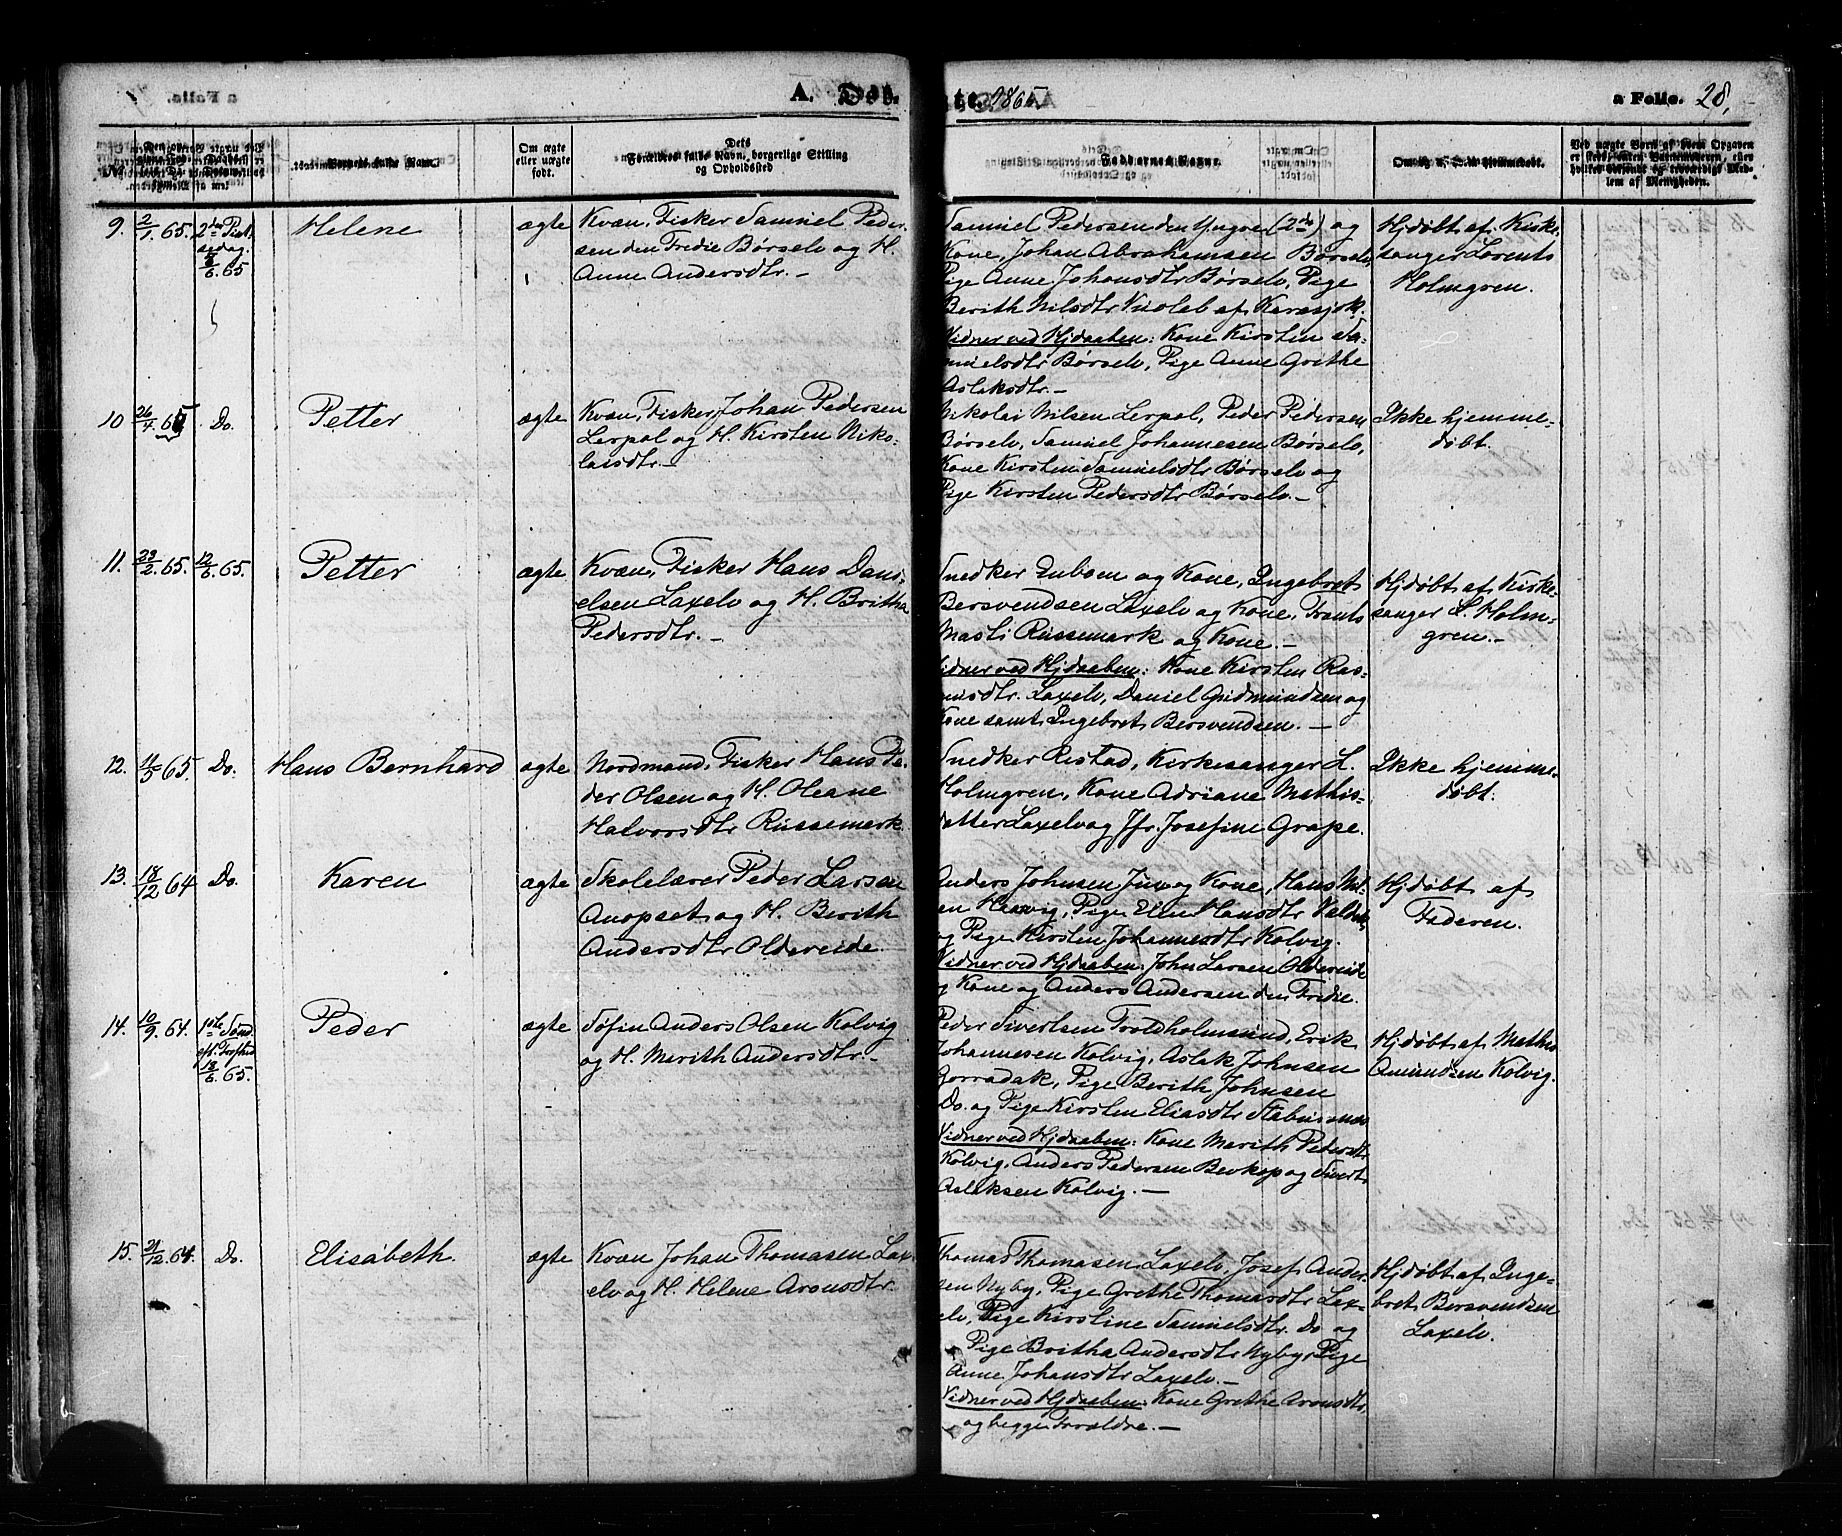 A. Døb
te. 1865.
a Folio. 28.
Barnets fulde Navn.
Om ægte
eller uægte
født.
Dets
Forældres fulde Navn, borgerlige Stilling
og Opholdssted
Faddernes Navne.
Ved uægte Børn af hvem Opgaven
er skeet, enten Barnemoderen, eller
hvilket bekjendt og troværdigt Med-
lem af Menigheden.
9. 2/1 65. 2den Pint-
sedag.
5/6 65
Helene
ægte
Kvæn, Fisker Samuel Peder-
sen den Tredie Børselv og H.
Anne Andersdtr. -
Samuel Pedersen den Yngre (2de) og
Kone, Johan Abrahamsen Børselv,
Pige Anne Johansdtr Børselv, Pige
Berith Nilsdtr Vuoleb af Karasjok.
Vidner ved Hjdaaben: Kone Kirsten Sa-
muelsdtr Børselv, Pige Anne Grethe
Aslaksdtr. -
Hjdøbt af Kirke-
sanger Lorents
Holmgren.
10 26/4 65 Do.
Petter
ægte
Kvæn, Fisker Johan Pedersen
Lerpol og H. Kirsten Niko-
laisdtr. -
Nikolai Nilsen Lerpol, Peder Pedersen
Børselv, Samuel Johannesen Børselv,
Kone Kirsten Samuelsdtr Børselv og
Pige Kirsten Pedersdtr Børselv. -
Ikke hjemme-
døbt.
11. 23/2 65. 12/6 65.
Petter
ægte
Kvæn, Fisker Hans Dani-
elsen Laxelv og H. Britha
Pedersdtr. -
Snedker Enbom og Kone, Ingebret
Bersvendsen Laxelv og Kone, Frants
Masti Russemark og Kone. -
Vidner ved Hjdaaben: Kone Kirsten Ras-
musdtr. Laxelv, Daniel Gudmundsen og
Kone samt Ingebret Bersvendsen. -
Hjdøbt af Kirke-
sanger L. Holm-
gren. -
12. 11/5 65. Do.
Hans Bernhard
ægte
Nordmand, Fisker Hans Pe-
der Olsen og H. Oleane
Halvorsdtr Russemark.
Snedker Ristad, Kirkesanger L.
Holmgren, Kone Adriane Mathis-
datter Laxelv og Jfr. Josefine Grape.
Ikke hjemme-
døbt.
13. 18/12 64. Do.
Karen
ægte
Skolelærer Peder Larsen
Anopset og H. Berith
Andersdtr Oldereide.
Anders Johnsen Juv og Kone, Hans Nil-
en Hærvig, Pige Ellen Hansdtr
og Pige Kirsten Johannesdtr Kolvig.
Vidner ved Hjdaaben: John Larsen Oldereide
og Kone og Anders Andersen den Tredie.
Hjdøbt af
Faderen.
14. 10/9 64. 1ste Sønd.
eft. Trefhed
18/6 65.
Peder
ægte
Søfin Anders Olsen Kolvig
og H. Merith Andersdtr. -
Peder Sivertsen Troldholmsund, Erik
Johannesen Kolvig, Aslak Johnsen
Gorradak, Pige Berith Johnsen
Do. og Pige Kirsten Eliasdtr Stabursnæs
Vidner ved Hjdaaben: Kone Merith Pedersdtr
Kolvig, Anders Pedersen Bevkop og Sivert
Aslaksen Kolvig. -
Hjdøbt af Mathis
Amundsen Kolvig.
15. 21/12 64. Do.
Elisabeth.
ægte
Kvæn Johan Thomasen Lax-
elv og H. Helene Aronsdtr.
Thomas Thomasen Laxelv, Josef Ander-
sen Nyby, Pige Grethe Thomasdtr Lax-
elv, Pige Kirstine Samuelsdtr. Do og
Pige Britha Andersdtr Nyby, Pige
Anne Johansdtr Laxelv. -
Vidner ved Hjdaaben: Kone Grethe Aronsdtr.
og begge Forældre. -
Hjdøbt af Inge-
bret Bersvendsen
Laxelv.